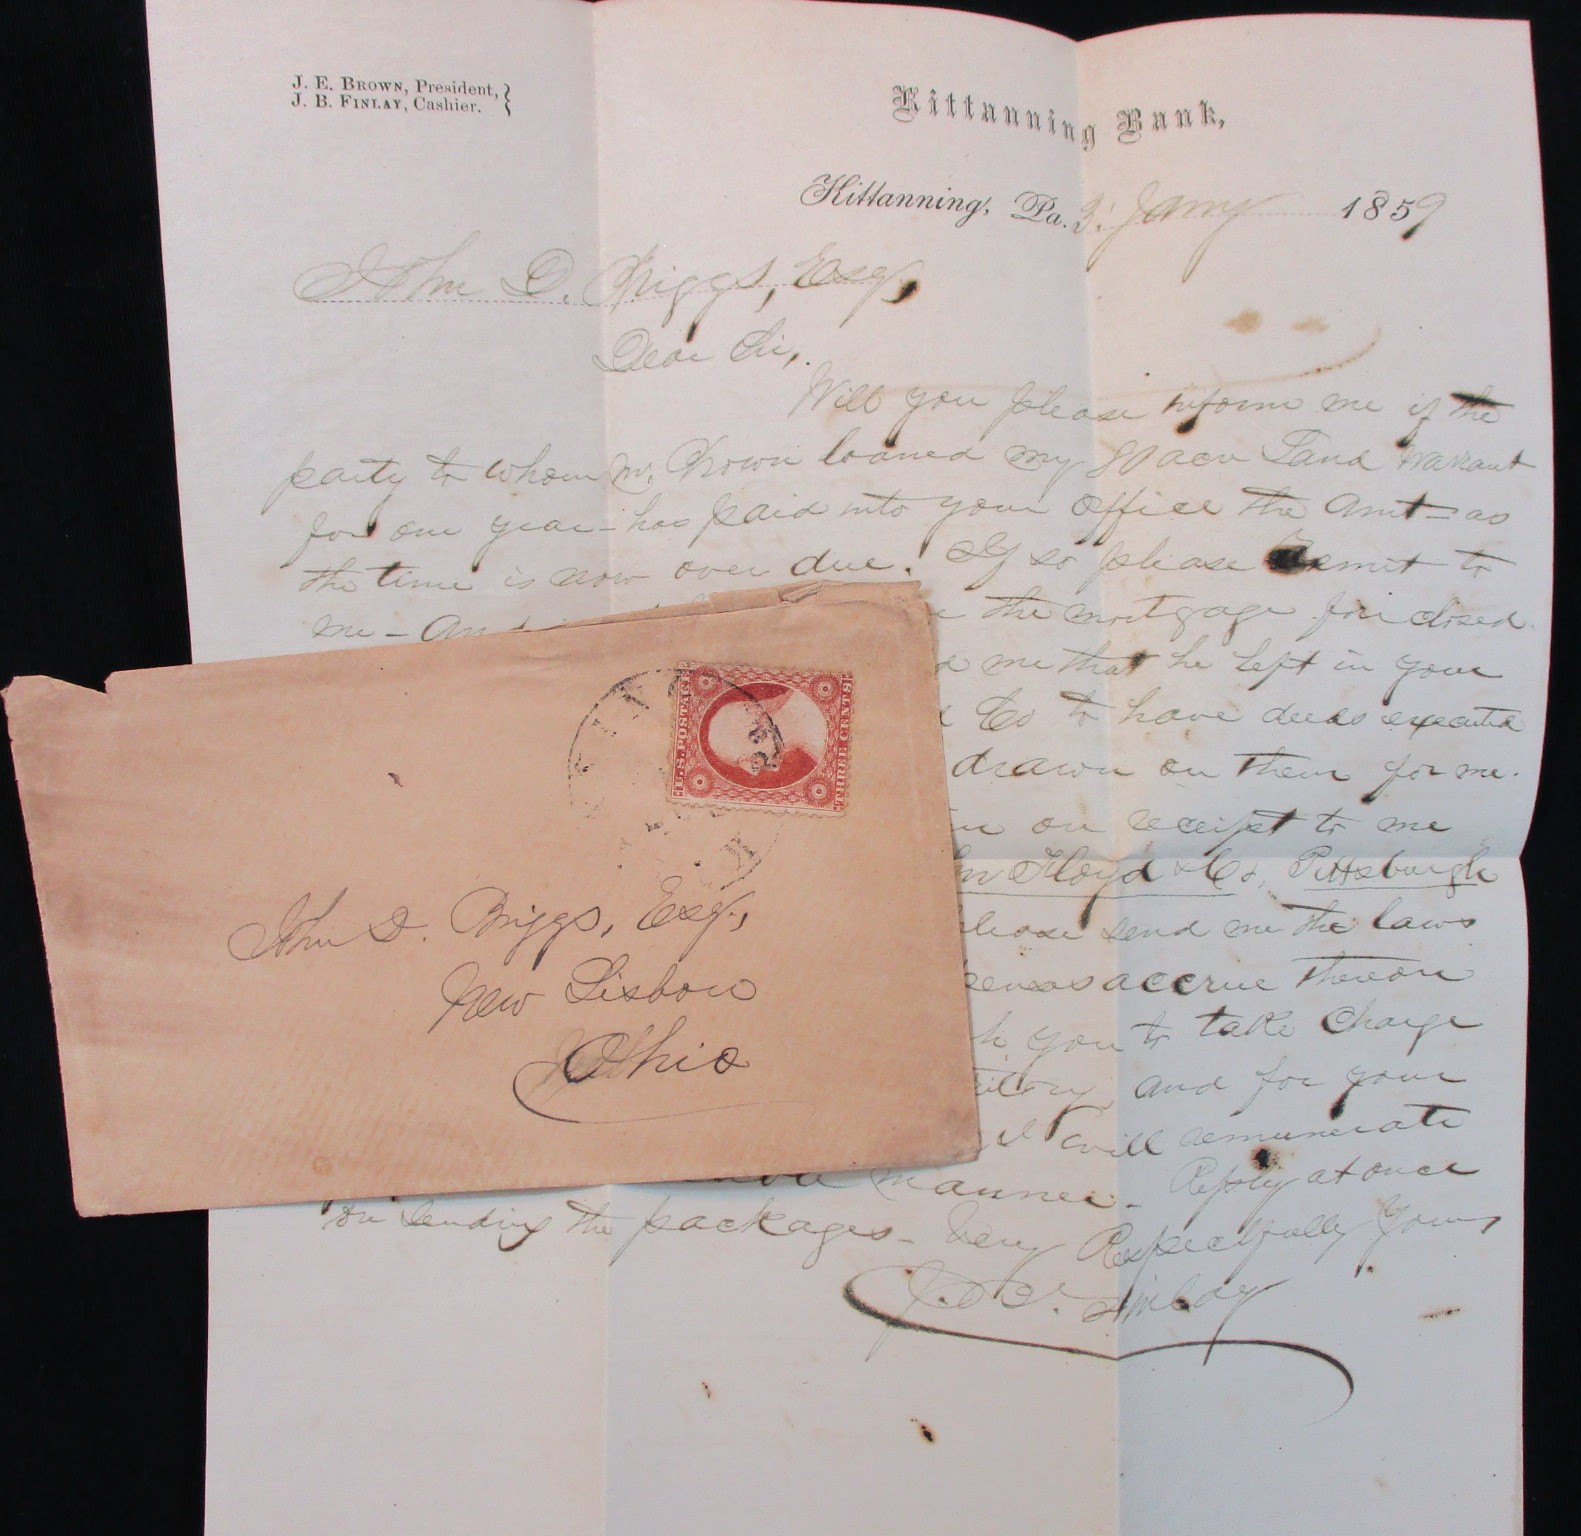 J. E. BROWN, President,
J. B. FINLAY, Cashier.
Kittanning Bank,
Kittanning, Pa. 3. Jany 1859
John D. Briggs, Esq,
Dear Sir,
Will you please inform me if the
party to whom Mr. Brown loaned my acre Land Warrant
for one year - has paid into your office the amt - as
the time is now over due. If so please remit to
me - And the mortgage foreclosed.
me that he left in your
Co to have deeds executed
drawn on them for me.
on receipt to me
Floyd & Co, Pittsburgh
please send me the laws
accrue thereon
you to take charge
and for your
I will remunerate
manner - Reply at once
on sending the packages - Very Respectfully Yours
J. B. Finlay
U.S. POSTAGE
THREE CENTS
John D. Briggs, Esq,
New Lisbon
Ohio